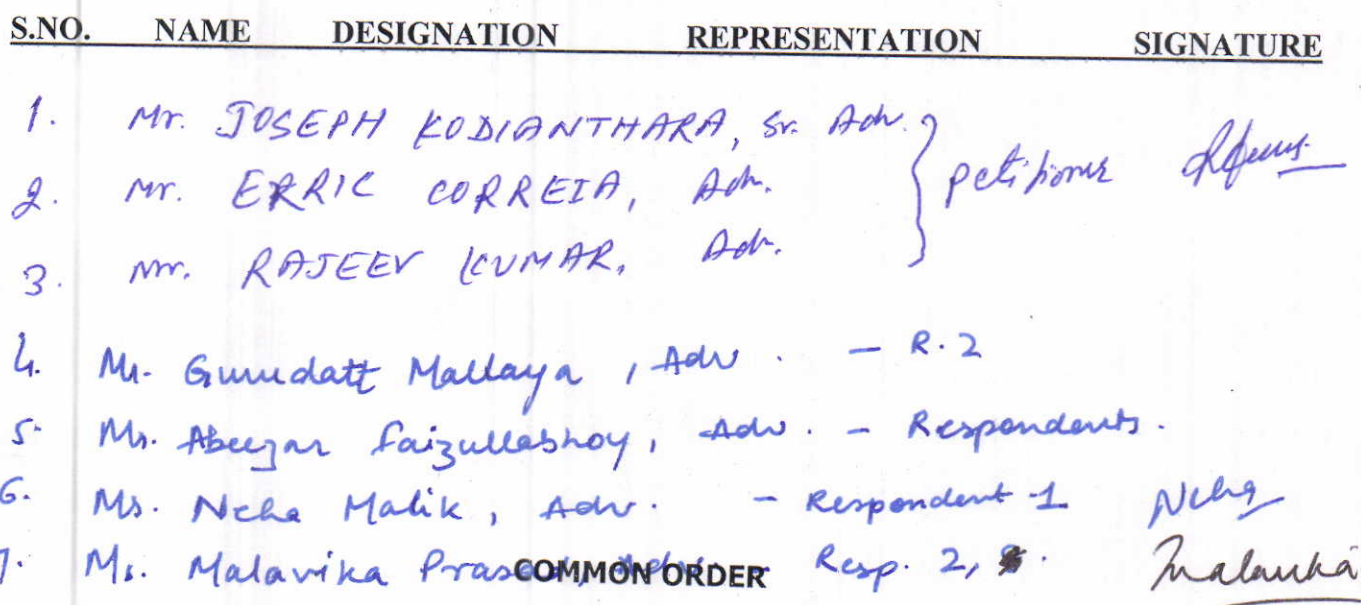 S.NO. NAME DESIGNATION REPRESENTATION SIGNATURE
1. Mr. JOSEPH KODIANTHARA, Sr. Adv.
2. Mr. ERRIC CORREIA, Adv. } petitioner
3. Mr. RAJEEV KUMAR, Adv.
4. Mr. Gurudatt Mallaya, Adv. - R.2
5. Mr. Abeezar Faizullabhoy, Adv. - Respondents.
6. Ms. Neha Malik, Adv. - Respondent-1 Neha
7. Ms. Malavika Resp. 2, Malavika
COMMON ORDER